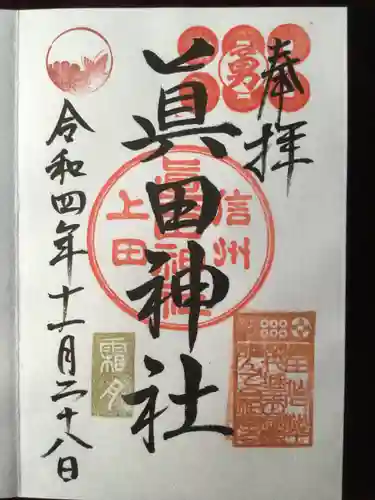 奉拝
勇
眞田神社
信州
上田
眞田神社
霜月
令和四年十一月二十八日